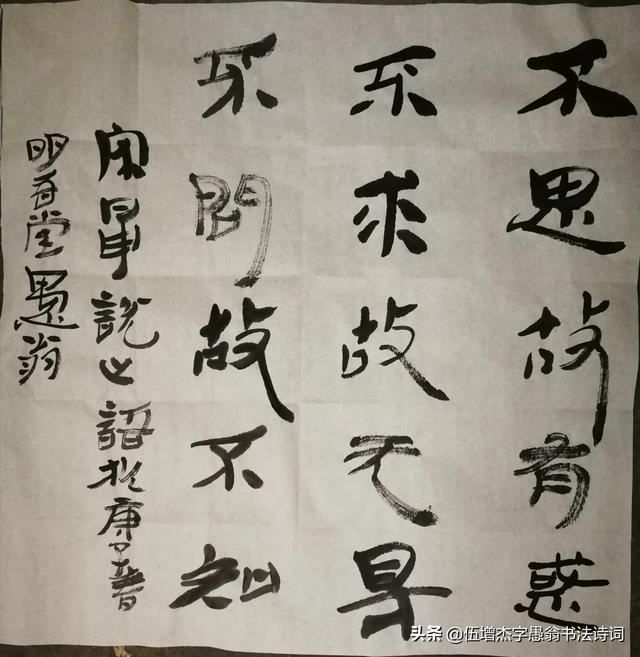 不思故有惑
不求故无㝵
不問故不知
宋晁說之語於庚子春
明堂愚翁
头条 @伍增杰字愚翁书法诗词